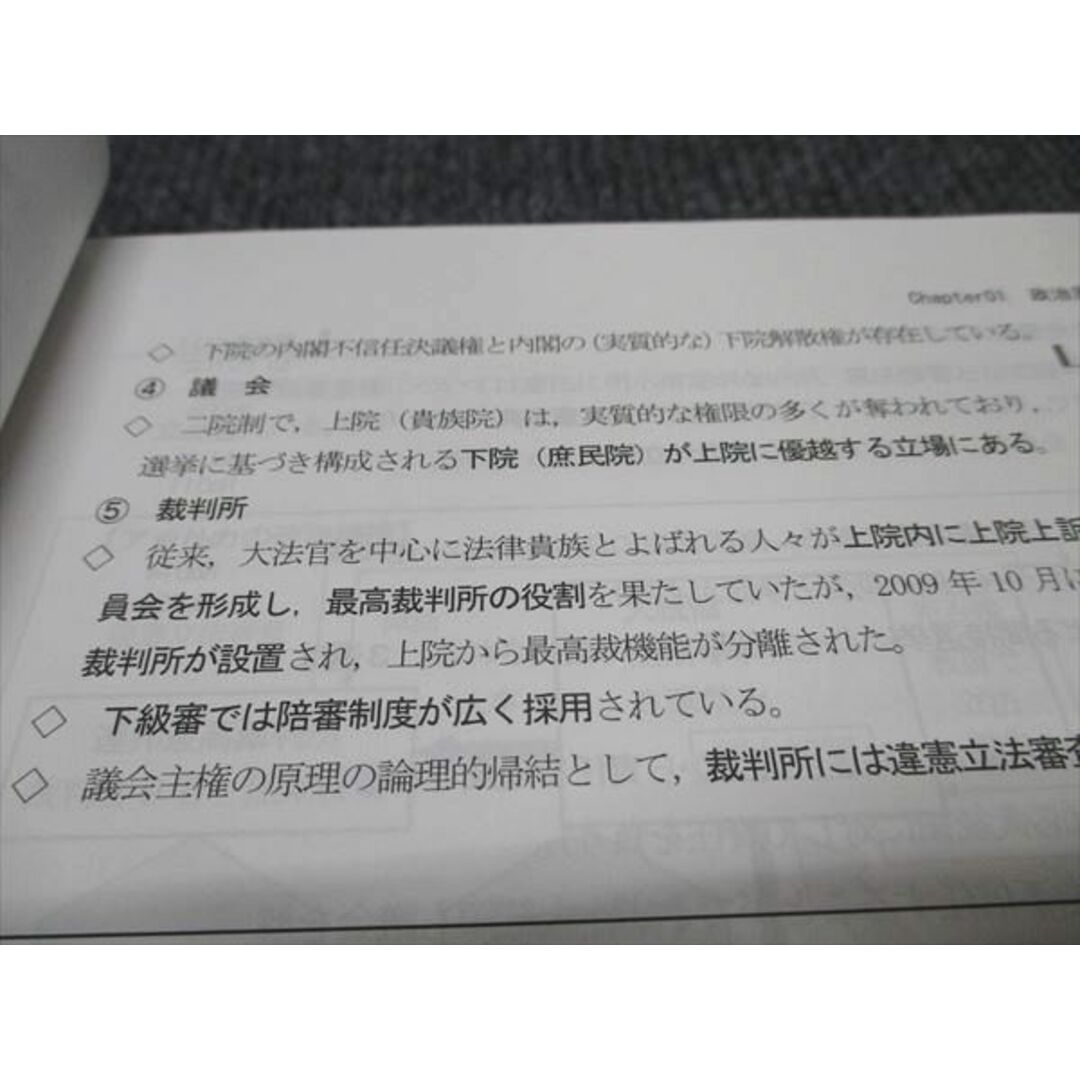 Chapter01 政治
◇ 下院の内閣不信任決議権と内閣の(実質的な)下院解散権が存在している。
④ 議会
◇ 二院制で，上院（貴族院）は，実質的な権限の多くが奪われており，
選挙に基づき構成される下院（庶民院）が上院に優越する立場にある。
⑤ 裁判所
◇ 従来，大法官を中心に法律貴族とよばれる人々が上院内に上院上訴
員会を形成し，最高裁判所の役割を果たしていたが，2009年10月に
裁判所が設置され，上院から最高裁機能が分離された。
◇ 下級審では陪審制度が広く採用されている。
◇ 議会主権の原理の論理的帰結として，裁判所には違憲立法審査